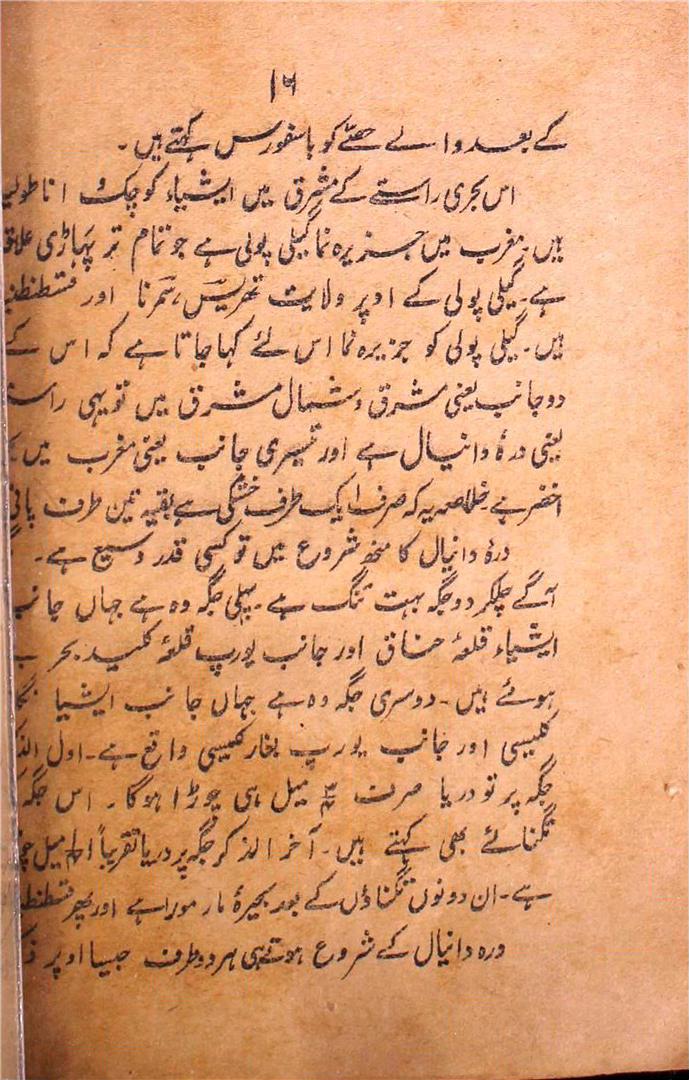 ۱۶
کے بعد والے حصّے کو باسفورس کہتے ہیں۔
اس بحری راستے کے مشرق میں ایشیاء کوچک و اناطولیہ
ہیں۔ مغرب میں جزیرہ نما گیلی پولی ہے جو تمام تر پہاڑی علاقہ
ہے۔ گیلی پولی کے اوپر ولایت تھریس، سمرنا اور قسطنطنیہ
ہیں۔ گیلی پولی کو جزیرہ نما اس لئے کہا جاتا ہے کہ اس کے
دو جانب یعنی مشرق و شمال مشرق میں تو یہی راستہ
یعنی درۂ دانیال ہے اور تیسری جانب یعنی مغرب میں
اخضر ہے۔ خلاصہ یہ کہ صرف ایک طرف خشکی ہے بقیہ تین طرف پانی
درۂ دانیال کا منھ شروع میں تو کسی قدر وسیع ہے۔
آگے چلکر دو جگہ بہت تنگ ہے۔ پہلی جگہ وہ ہے جہاں جانب
ایشیاء قلعۂ حناق اور جانب یورپ قلعۂ کلید بحر
ہوئے ہیں۔ دوسری جگہ وہ ہے جہاں جانب ایشیا
کلیسی اور جانب یورپ بغار کلیسی واقع ہے۔ اول الذکر
جگہ پر تو دریا صرف ¾ میل ہی چوڑا ہوگا۔ اس جگہ
تنگنائے بھی کہتے ہیں۔ آخر الذکر جگہ پر دریا تقریباً میل
ہے۔ ان دونوں تنگناؤں کے بعد بحیرۂ مارمورا ہے اور پھر قسطنطنیہ
درہ دانیال کے شروع ہوتے ہی ہر دو طرف جیسا اوپر